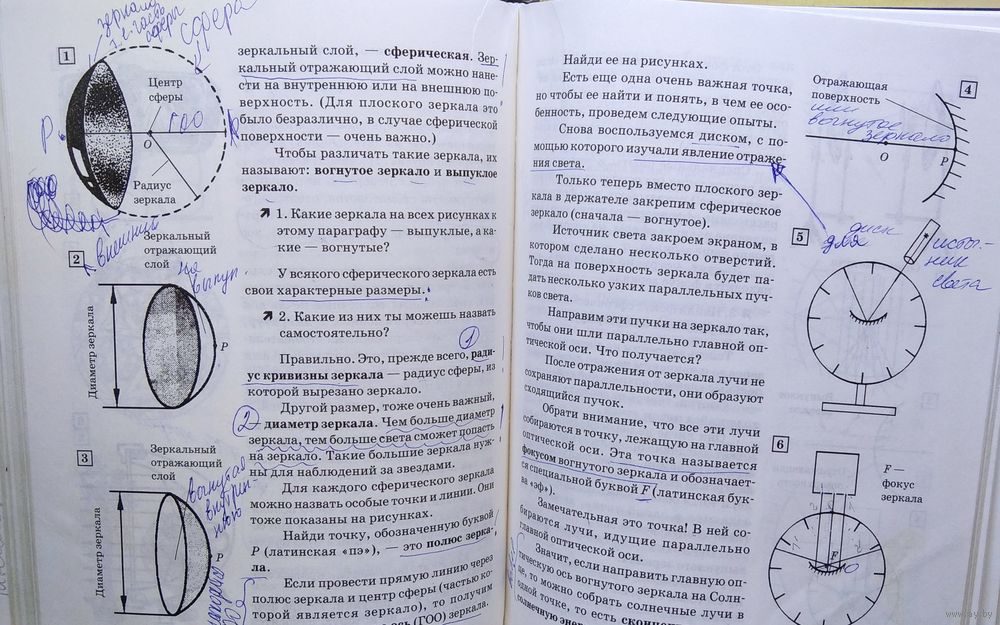 зеркало
т.е. часть
сферы
сфера
1
Центр
сферы
ГОО
P
O
Радиус
зеркала
внешний
2
Зеркальный
отражающий
слой
на
выпук
Диаметр зеркала
P
3
Зеркальный
отражающий
слой
вогнутая
внутрен-
нюю
Диаметр зеркала
P
зеркальный слой, — сферическая. Зер-
кальный отражающий слой можно нане-
сти на внутреннюю или на внешнюю по-
верхность. (Для плоского зеркала это
было безразлично, в случае сферической
поверхности — очень важно.)
Чтобы различать такие зеркала, их
называют: вогнутое зеркало и выпуклое
зеркало.
1. Какие зеркала на всех рисунках к
этому параграфу — выпуклые, а ка-
кие — вогнутые?
У всякого сферического зеркала есть
свои характерные размеры.
2. Какие из них ты можешь назвать
самостоятельно?
1
Правильно. Это, прежде всего, ради-
ус кривизны зеркала — радиус сферы, из
которой вырезано зеркало.
Другой размер, тоже очень важный,
2
— диаметр зеркала. Чем больше диаметр
зеркала, тем больше света сможет попасть
на зеркало. Такие большие зеркала нуж-
ны для наблюдений за звездами.
Для каждого сферического зеркала
можно назвать особые точки и линии. Они
тоже показаны на рисунках.
Найди точку, обозначенную буквой
P (латинская «пэ»), — это полюс зерка-
ла.
Если провести прямую линию через
полюс зеркала и центр сферы (частью ко-
торой является зеркало), то получим
ось (ГОО) зеркала.
Найди ее на рисунках.
Есть еще одна очень важная точка,
но чтобы ее найти и понять, в чем ее осо-
бенность, проведем следующие опыты.
Снова воспользуемся диском, с по-
мощью которого изучали явление отраже-
ния света.
Только теперь вместо плоского зер-
кала в держателе закрепим сферическое
зеркало (сначала — вогнутое).
Источник света закроем экраном, в
котором сделано несколько отверстий.
Тогда на поверхность зеркала будет па-
дать несколько узких параллельных пуч-
ков света.
Направим эти пучки на зеркало так,
чтобы они шли параллельно главной оп-
тической оси. Что получается?
После отражения от зеркала лучи не
сохраняют параллельности, они образуют
сходящийся пучок.
Обрати внимание, что все эти лучи
собираются в точку, лежащую на главной
оптической оси. Эта точка называется
фокусом вогнутого зеркала и обозначает-
ся специальной буквой F (латинская бук-
ва «эф»).
Замечательная это точка! В ней со-
бираются лучи, идущие параллельно
главной оптической оси.
Значит, если направить главную оп-
тическую ось вогнутого зеркала на Солн-
це, то можно собрать солнечные лучи в
одной точке, то есть
солнечную
4
Отражающая
поверхность
или
вогнутое зеркало
O
P
5
диск
для
источ-
ник
света
6
F —
фокус
зеркала
F
www.ay.by